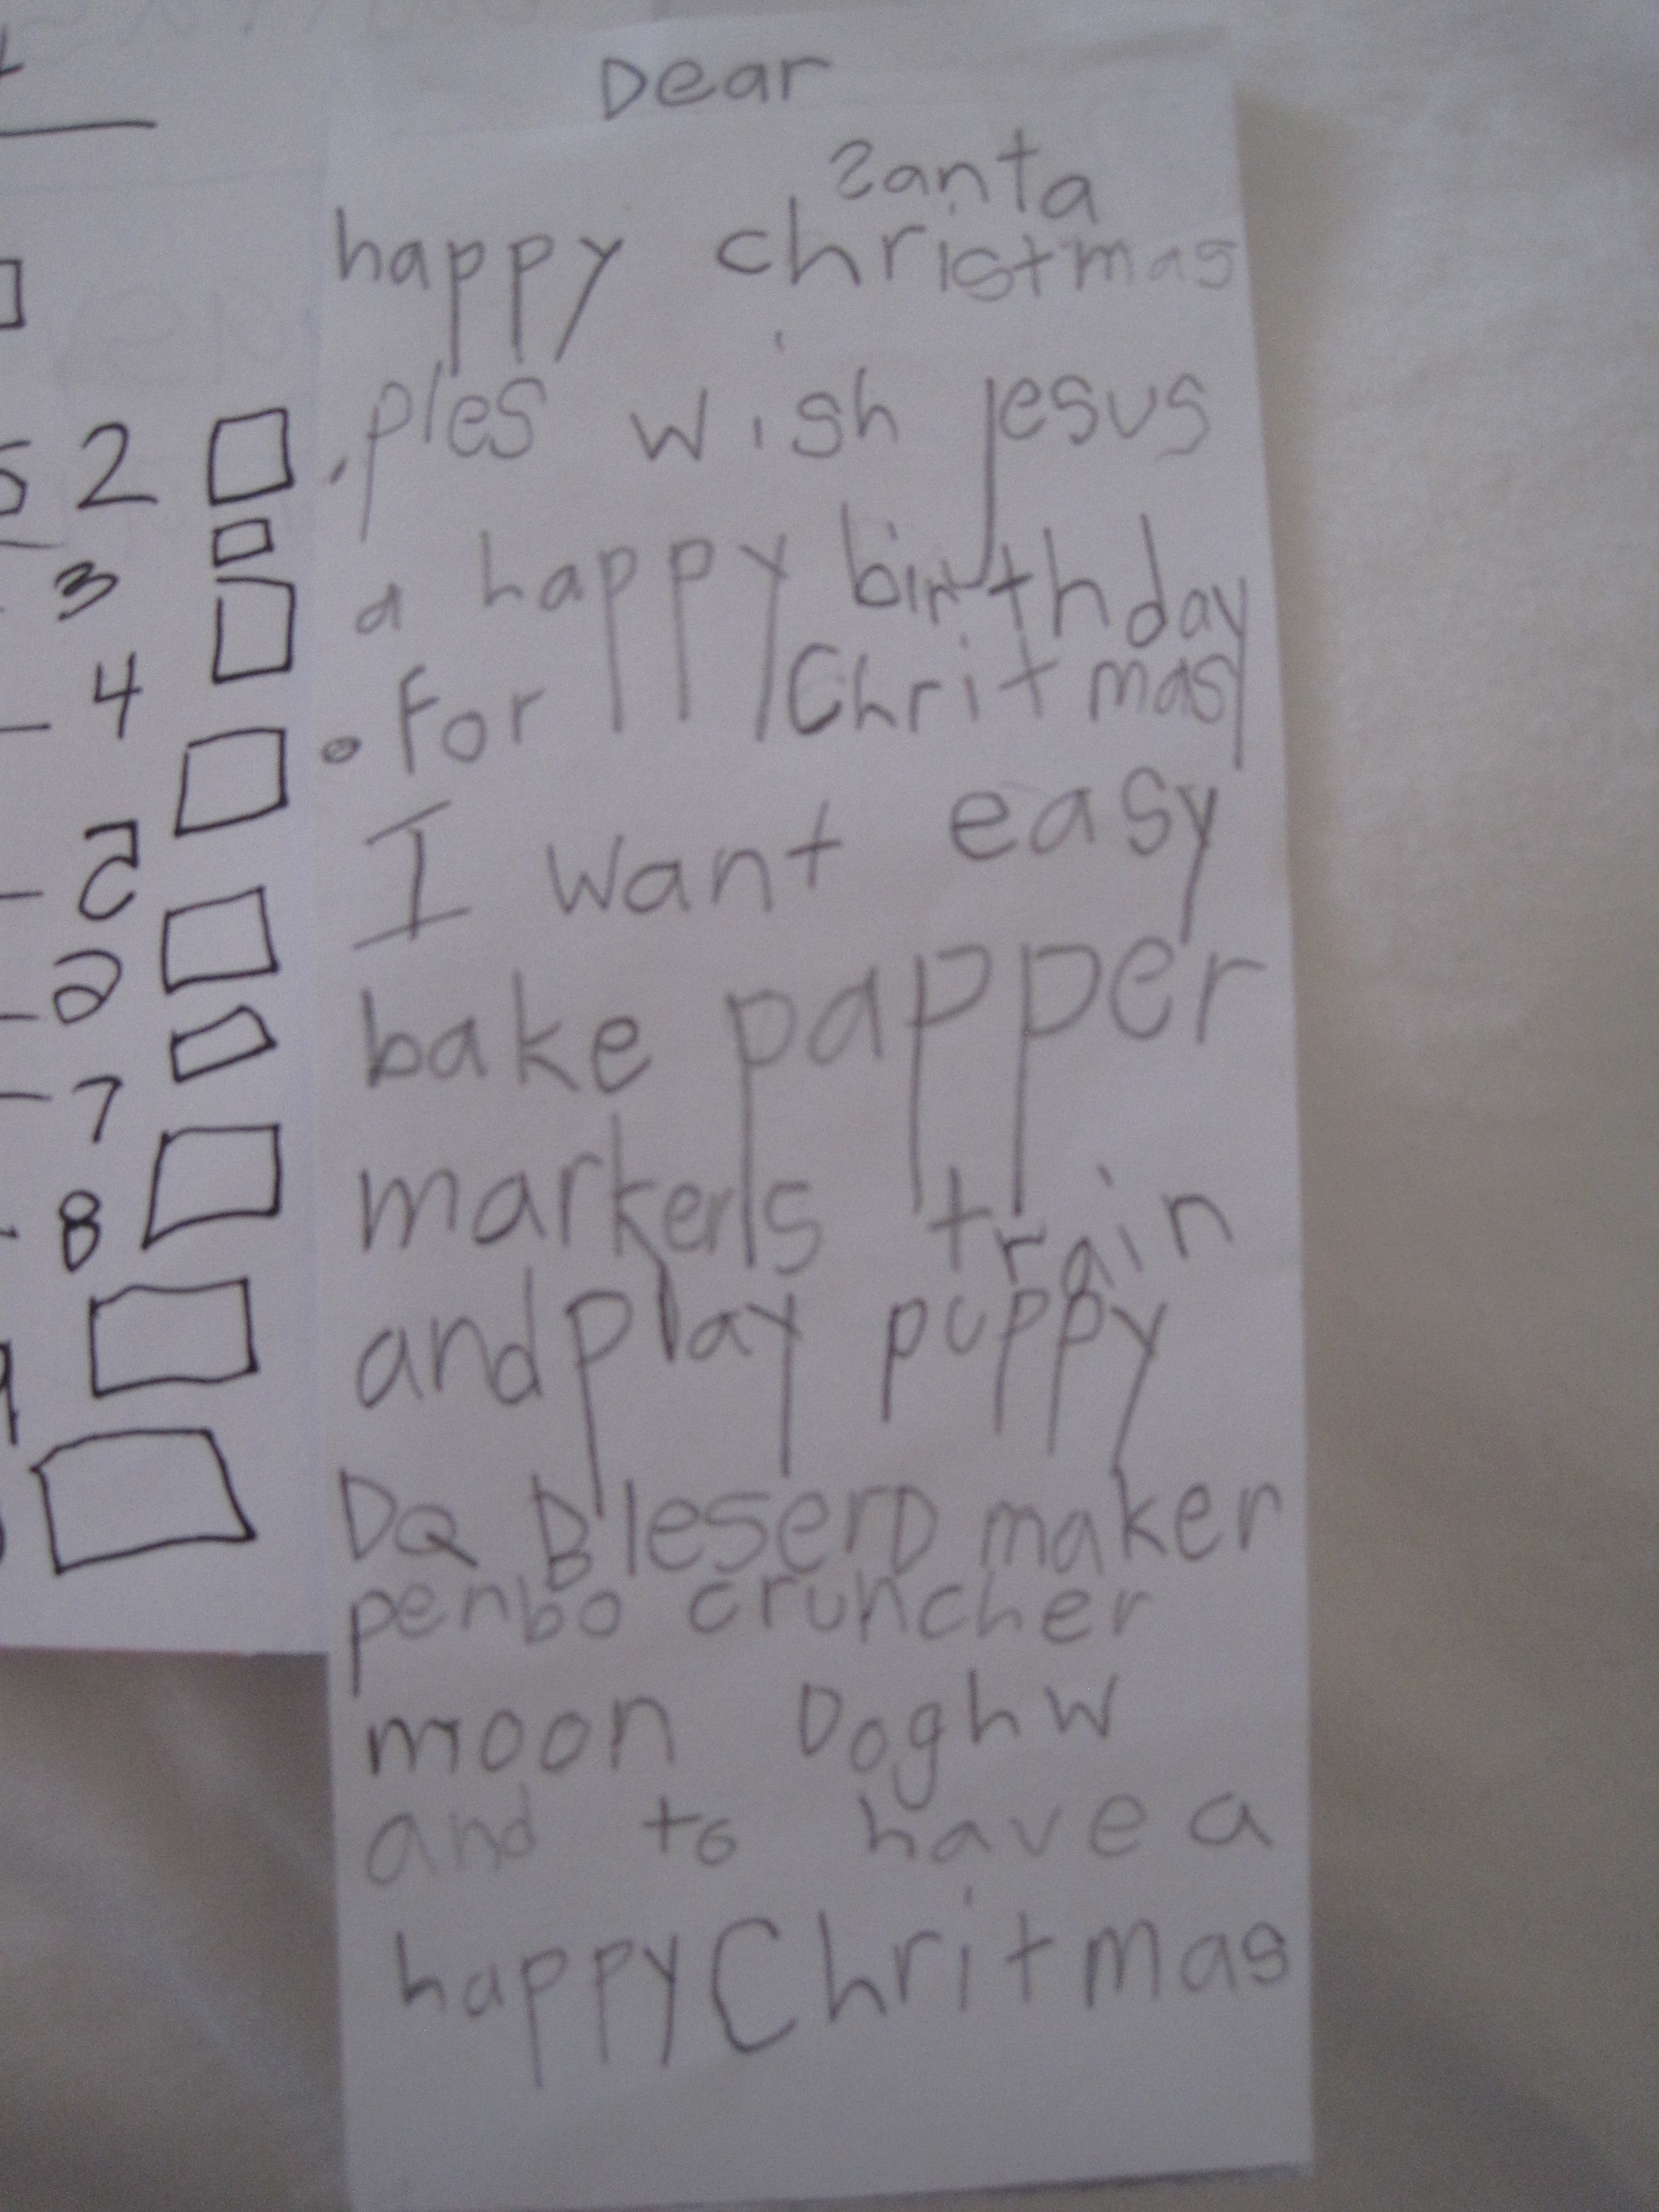 Dear
Santa
happy christmas
ples wish jesus
a happy birthday
. For Chritmas
I want easy
bake papper
markers train
and play puppy
DQ Bleserd maker
penbo cruncher
moon Doghw
and to have a
happy Chritmas
2
3
4
7
8